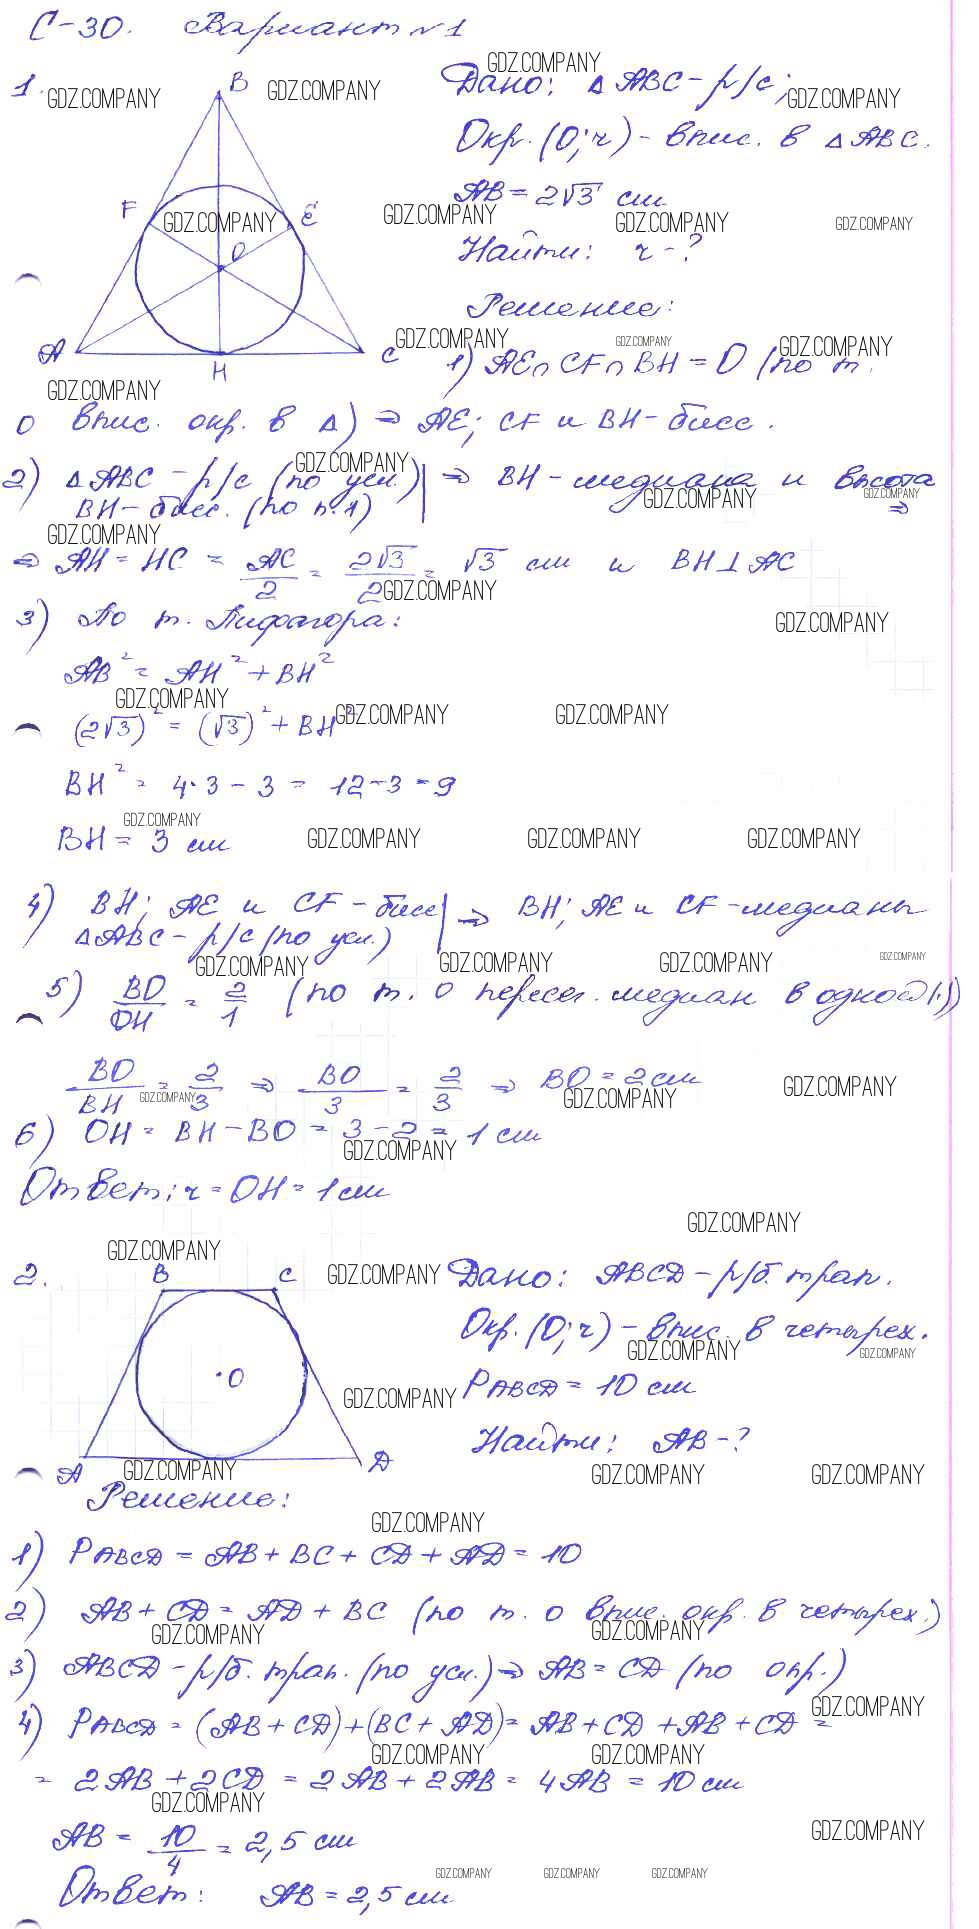 С-30. Вариант №1
1.
B
F
E
O
A
H
C
Дано: △ABC-р/с;
Окр.(O;r)-впис. в △ABC.
AB=2√3 см
Найти: r-?
Решение:
1) AE∩CF∩BH=O (по т.
о впис. окр. в △) ⇒ AE; CF и BH-бисс.
2) △ABC-р/с (по усл.) | ⇒ BH-медиана и высота
BH-бисс. (по п.1) ⇒
⇒ AH=HC = AC/2 = 2√3/2 = √3 см и BH⊥AC
3) По т. Пифагора:
AB²=AH²+BH²
(2√3)²=(√3)²+BH²
BH²=4·3-3=12-3=9
BH=3 см
4) BH; AE и CF-бисс | ⇒ BH; AE и CF-медианы
△ABC-р/с (по усл.)
5) BO/OH = 2/1 (по т. о пересеч. медиан в одной (·))
BO/BH = 2/3 ⇒ BO/3 = 2/3 ⇒ BO=2см
6) OH=BH-BO=3-2=1 см
Ответ: r=OH=1см
2.
B C
O
A D
Дано: ABCD-р/б. трап.
Окр.(O;r)-впис. в четырех.
PABCD=10 см
Найти: AB-?
Решение:
1) PABCD=AB+BC+CD+AD=10
2) AB+CD=AD+BC (по т. о впис. окр. в четырех.)
3) ABCD-р/б. трап. (по усл.) ⇒ AB=CD (по опр.)
4) PABCD=(AB+CD)+(BC+AD)=AB+CD+AB+CD=
=2AB+2CD=2AB+2AB=4AB=10см
AB=10/4=2,5 см
Ответ: AB=2,5 см
GDZ.COMPANY